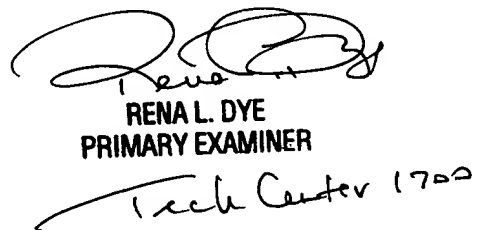 Rena L. Dye
RENA L. DYE
PRIMARY EXAMINER
Tech Center 1700